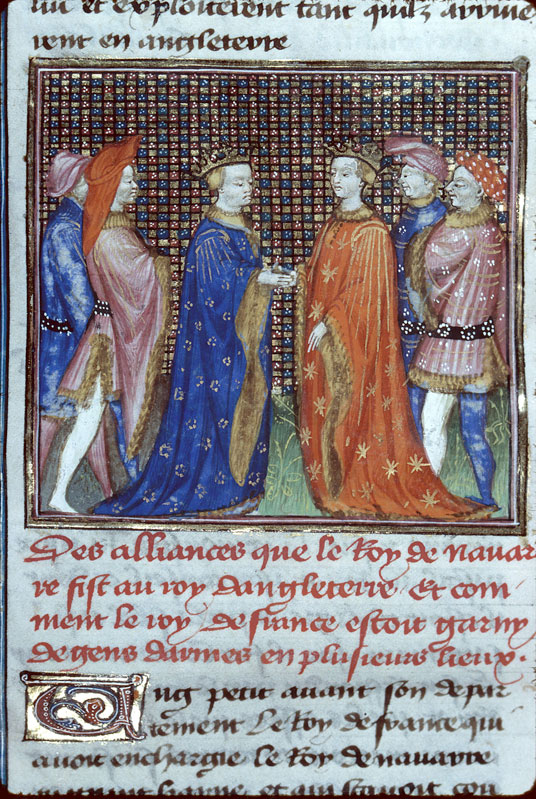 et exploiterent tant quilz arrive
rent en angleterre
Des alliances que le Roy de navar
re fist au roy dangleterre Et com
ment le roy de france estoit garny
de gens darmes en plusieurs lieux.
Ung petit avant son depar
tement Le Roy de france qui
avoit enchargie le Roy de navarre